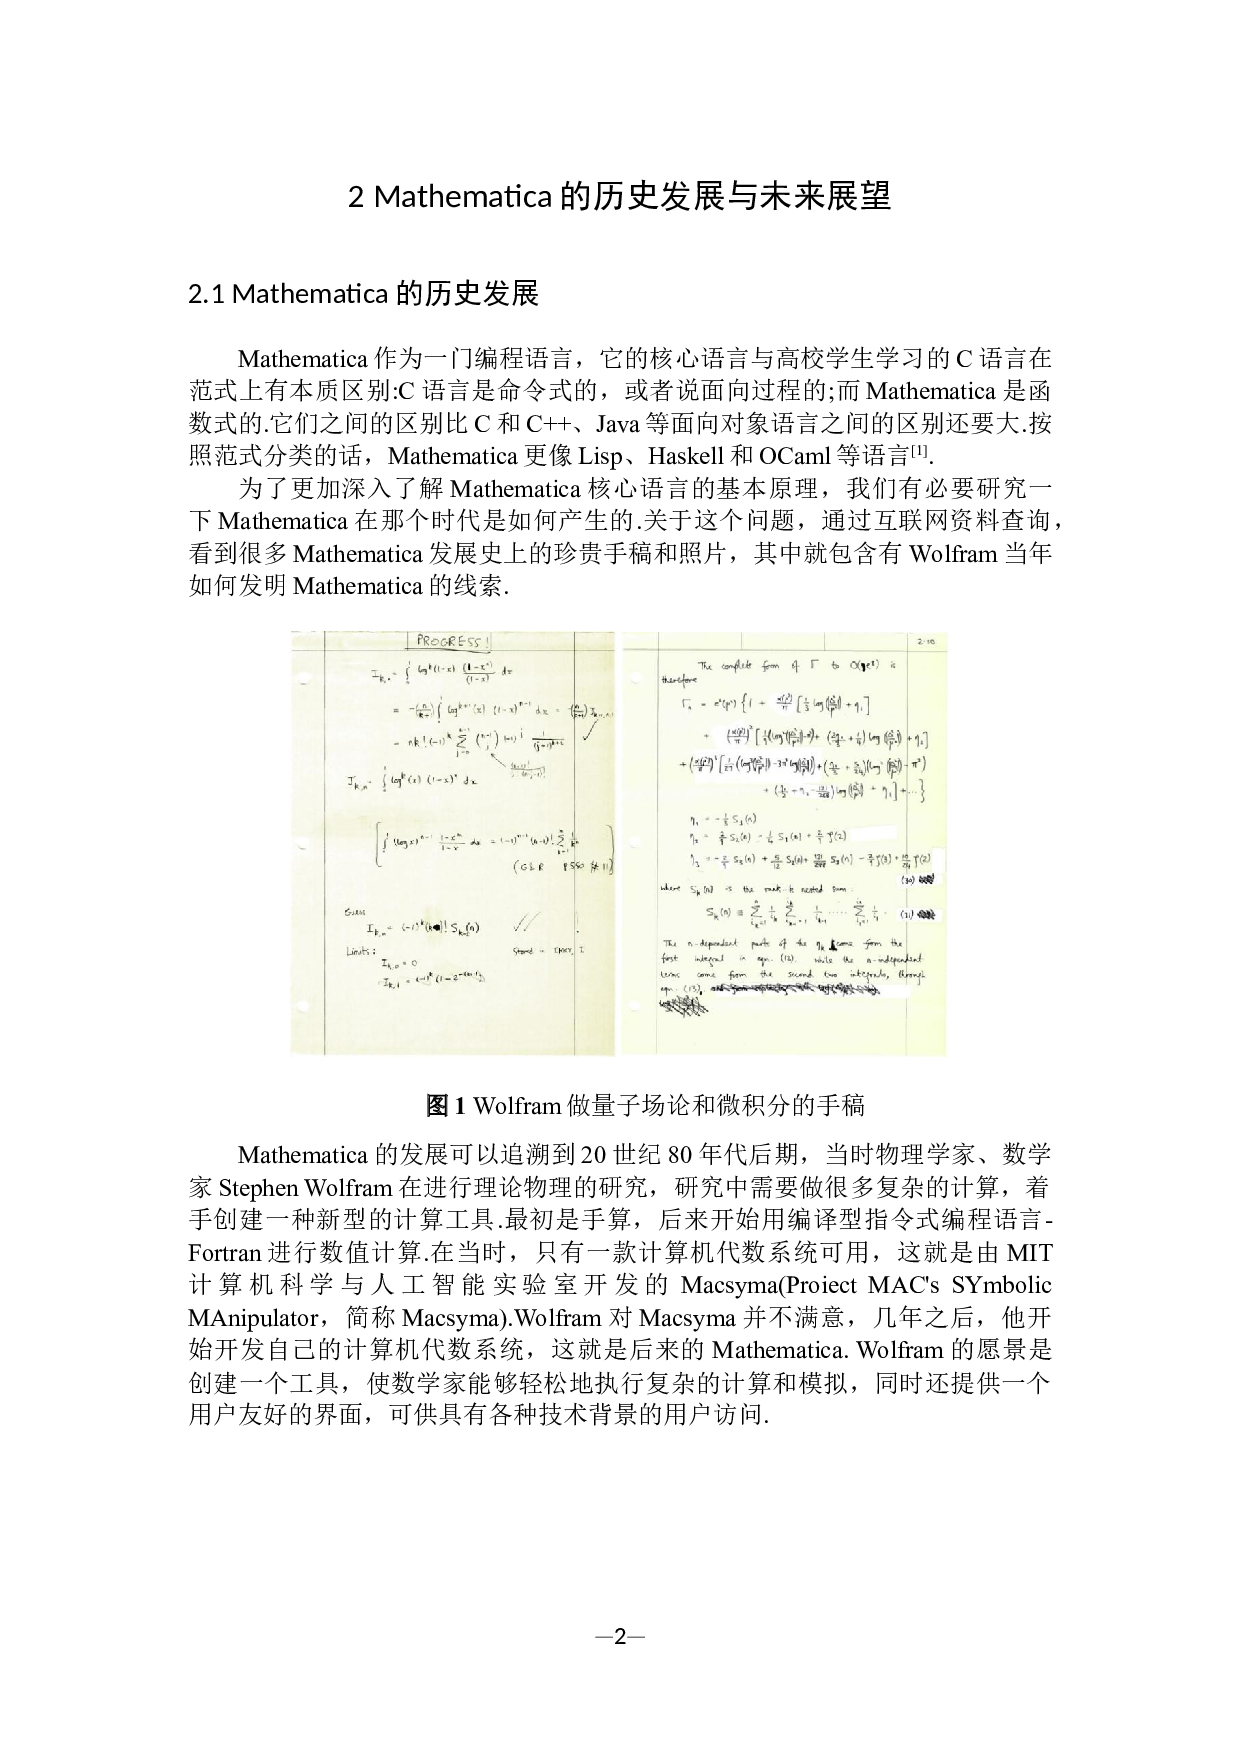 2 Mathematica 的历史发展与未来展望
2.1 Mathematica 的历史发展
Mathematica 作为一门编程语言，它的核心语言与高校学生学习的 C 语言在
范式上有本质区别:C 语言是命令式的，或者说面向过程的;而 Mathematica 是函
数式的.它们之间的区别比 C 和 C++、Java 等面向对象语言之间的区别还要大.按
照范式分类的话，Mathematica 更像 Lisp、Haskell 和 OCaml 等语言[1].
为了更加深入了解 Mathematica 核心语言的基本原理，我们有必要研究一
下 Mathematica 在那个时代是如何产生的.关于这个问题，通过互联网资料查询，
看到很多 Mathematica 发展史上的珍贵手稿和照片，其中就包含有 Wolfram 当年
如何发明 Mathematica 的线索.
PROGRESS!
Limits:
The complete form of Γ to is
therefore
where Sk(n) is the rank k nested sum
The n-dependent parts of the ηk come from the
first integral in eqn. (12). while the n-independent
terms come from the second two integrals, through
eqn. (13).
图 1 Wolfram 做量子场论和微积分的手稿
Mathematica 的发展可以追溯到 20 世纪 80 年代后期，当时物理学家、数学
家 Stephen Wolfram 在进行理论物理的研究，研究中需要做很多复杂的计算，着
手创建一种新型的计算工具.最初是手算，后来开始用编译型指令式编程语言-
Fortran 进行数值计算.在当时，只有一款计算机代数系统可用，这就是由 MIT
计算机科学与人工智能实验室开发的 Macsyma(Proiect MAC's SYmbolic
MAnipulator，简称 Macsyma).Wolfram 对 Macsyma 并不满意，几年之后，他开
始开发自己的计算机代数系统，这就是后来的 Mathematica. Wolfram 的愿景是
创建一个工具，使数学家能够轻松地执行复杂的计算和模拟，同时还提供一个
用户友好的界面，可供具有各种技术背景的用户访问.
—2—